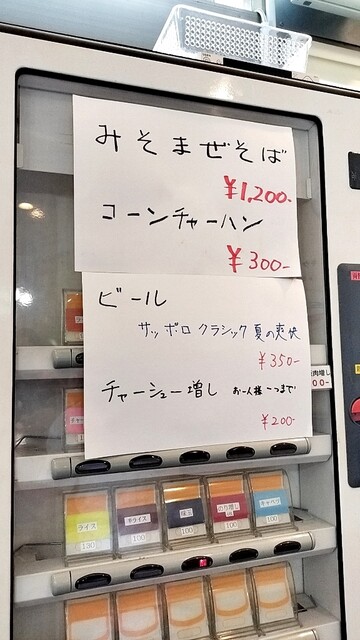 みそまぜそば
¥1,200-
コーンチャーハン
¥300-
ビール
サッポロ クラシック 夏の爽快
¥350-
チャーシュー増し お一人様一つまで
¥200-
肉増し
00-
ライス
130
半ライス
100
味玉
100
のり増し
100
キャベツ
100